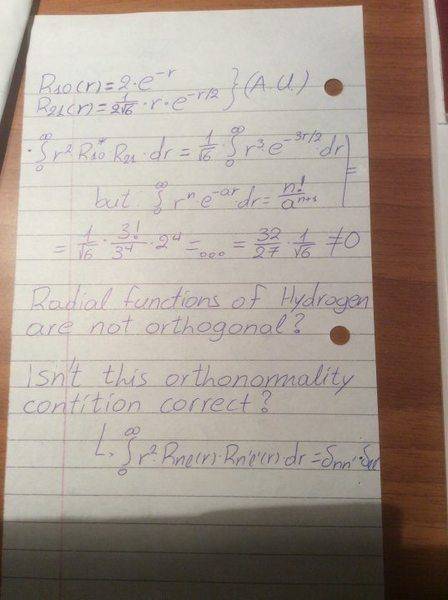 R₁₀(r) = 2·e^{-r}
R₂₁(r) = 1/(2√6)·r·e^{-r/2} } (A.U.)
·∫₀^∞ r² R₁₀* R₂₁·dr = 1/√6·∫₀^∞ r³·e^{-3r/2}·dr =
but ∫₀^∞ rⁿ·e^{-ar}·dr = n!/a^{n+1}
= 1/√6·3!/3⁴·2⁴ = ... = 32/27·1/√6 ≠ 0
Radial functions of Hydrogen
are not orthogonal?
Isn't this orthonormality
contition correct?
↳ ∫₀^∞ r²·Rnℓ(r)·Rn'ℓ'(r)·dr = δnn'·δℓℓ'